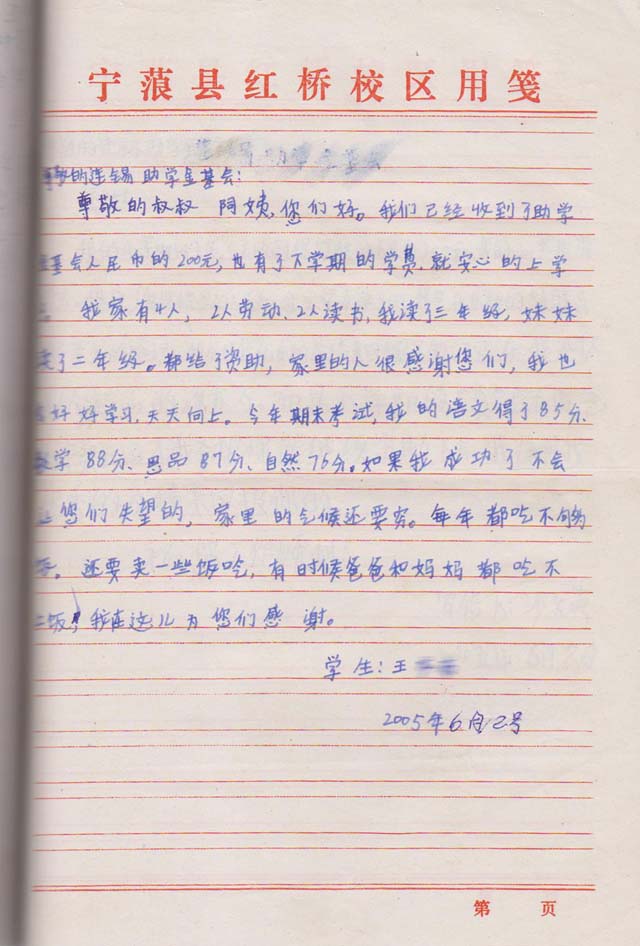 宁蒗县红桥校区用笺
敬的连锡助学金基会:
尊敬的叔叔 阿姨,您们好。我们已经收到了助学
基会人民币的200元,也有了下学期的学费,就安心的上学
我家有4人, 2人劳动、2人读书,我读了三年级,妹妹
读了二年级。都给了资助, 家里的人很感谢您们,我也
好好学习,天天向上。今年期末考试,我的语文得了85分、
数学88分、思品87分、自然76分。如果我成功了不会
让您们失望的, 家里的气候还要穷。每年都吃不够
。还要卖一些饭吃,有时候爸爸和妈妈都吃不
饭,我在这儿为您们感 谢。
学生:王
2005年6月2号
第 页